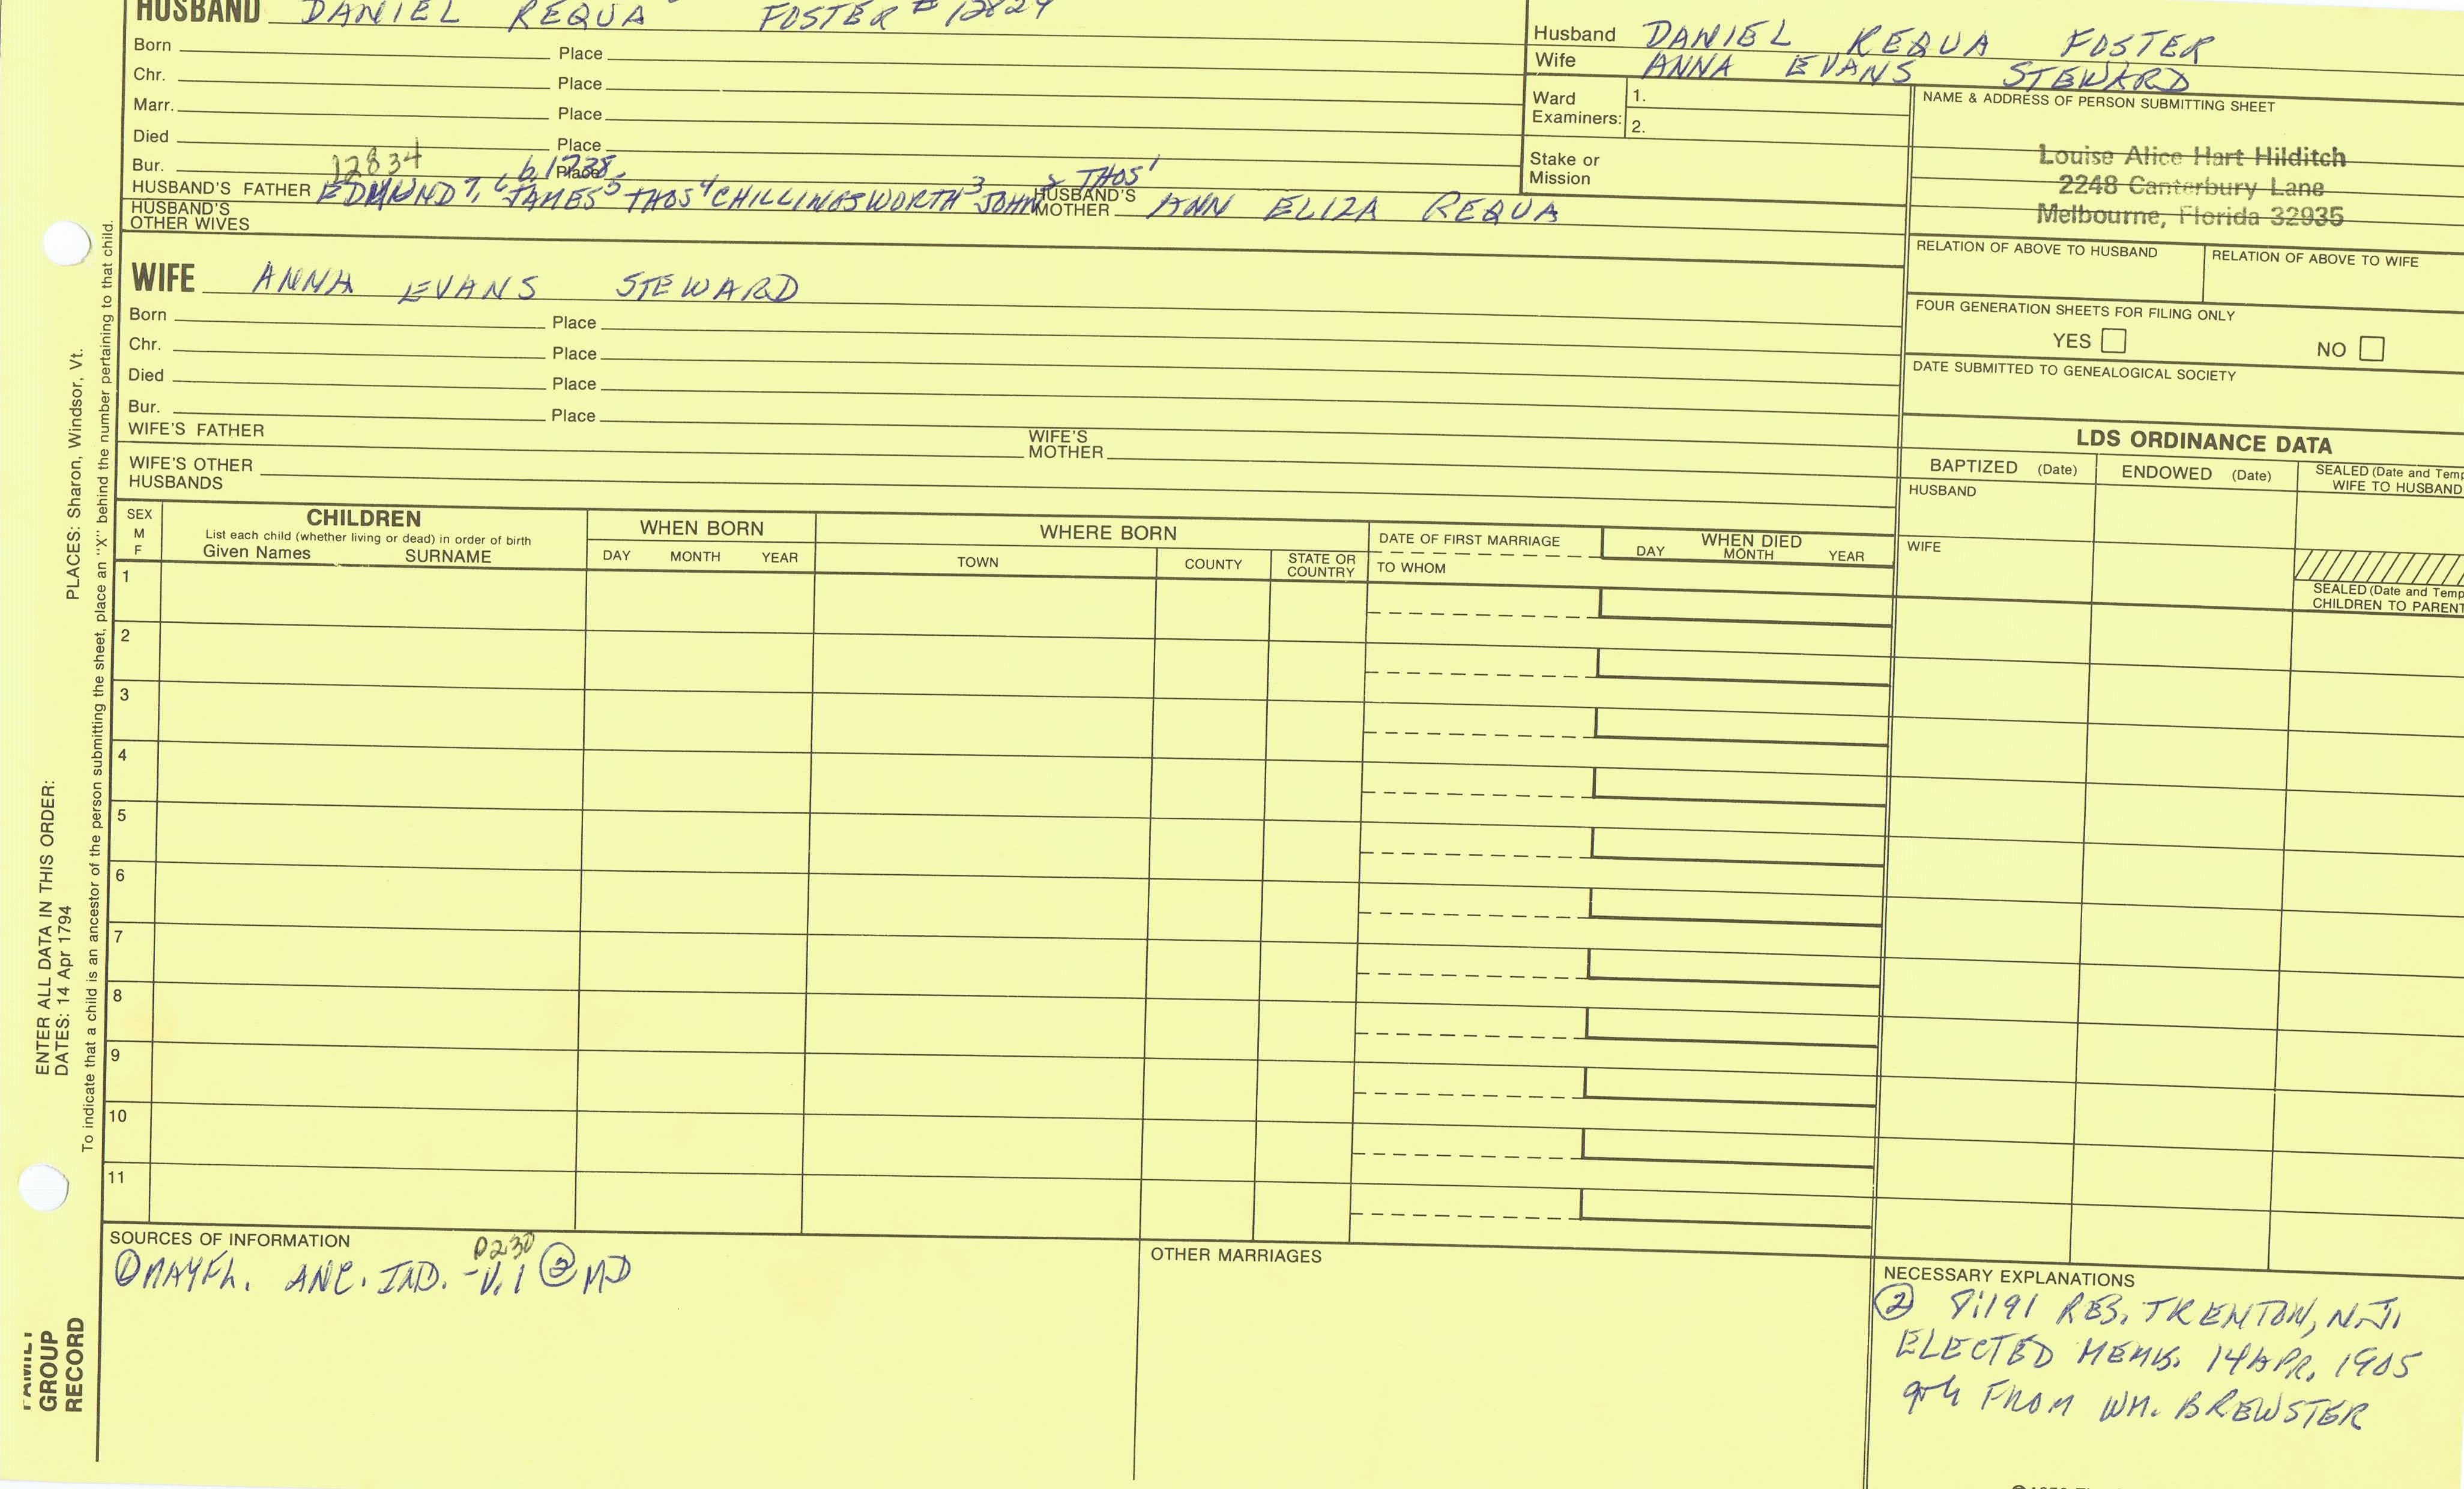 HUSBAND DANIEL REQUA FOSTER # 12829
Born Place
Chr. Place
Marr. Place
Died Place
Bur. Place
12834 b. 1738
HUSBAND'S FATHER EDMUND 7, 6 JAMES 5 THOS 4 CHILLINGSWORTH 3 JOHN 2 THOS 1 HUSBAND'S MOTHER ANN ELIZA REQUA
HUSBAND'S OTHER WIVES
WIFE ANNA EVANS STEWARD
Born Place
Chr. Place
Died Place
Bur. Place
WIFE'S FATHER WIFE'S MOTHER
WIFE'S OTHER HUSBANDS
Husband DANIEL REQUA FOSTER
Wife ANNA EVANS STEWARD
Ward Examiners: 1.
2.
Stake or Mission
NAME & ADDRESS OF PERSON SUBMITTING SHEET
Louise Alice Hart Hilditch
2248 Canterbury Lane
Melbourne, Florida 32935
RELATION OF ABOVE TO HUSBAND RELATION OF ABOVE TO WIFE
FOUR GENERATION SHEETS FOR FILING ONLY
YES NO
DATE SUBMITTED TO GENEALOGICAL SOCIETY
LDS ORDINANCE DATA
BAPTIZED (Date) ENDOWED (Date) SEALED (Date and Temp
WIFE TO HUSBAND
HUSBAND
WIFE
SEALED (Date and Temp
CHILDREN TO PARENT
SEX
M
F
CHILDREN
List each child (whether living or dead) in order of birth
Given Names SURNAME
WHEN BORN
DAY MONTH YEAR
WHERE BORN
TOWN COUNTY STATE OR COUNTRY
DATE OF FIRST MARRIAGE
TO WHOM
WHEN DIED
DAY MONTH YEAR
1
2
3
4
5
6
7
8
9
10
11
SOURCES OF INFORMATION
P230
① MAYFL. ANC. IND. - V. 1 ② MD
OTHER MARRIAGES
NECESSARY EXPLANATIONS
② 7:191 RES. TRENTON, N.J.
ELECTED MEMB. 14 APR. 1905
9th FROM WM. BREWSTER
PLACES: Sharon, Windsor, Vt.
ENTER ALL DATA IN THIS ORDER:
DATES: 14 Apr 1794
To indicate that a child is an ancestor of the person submitting the sheet, place an "X" behind the number pertaining to that child.
FAMILY
GROUP
RECORD